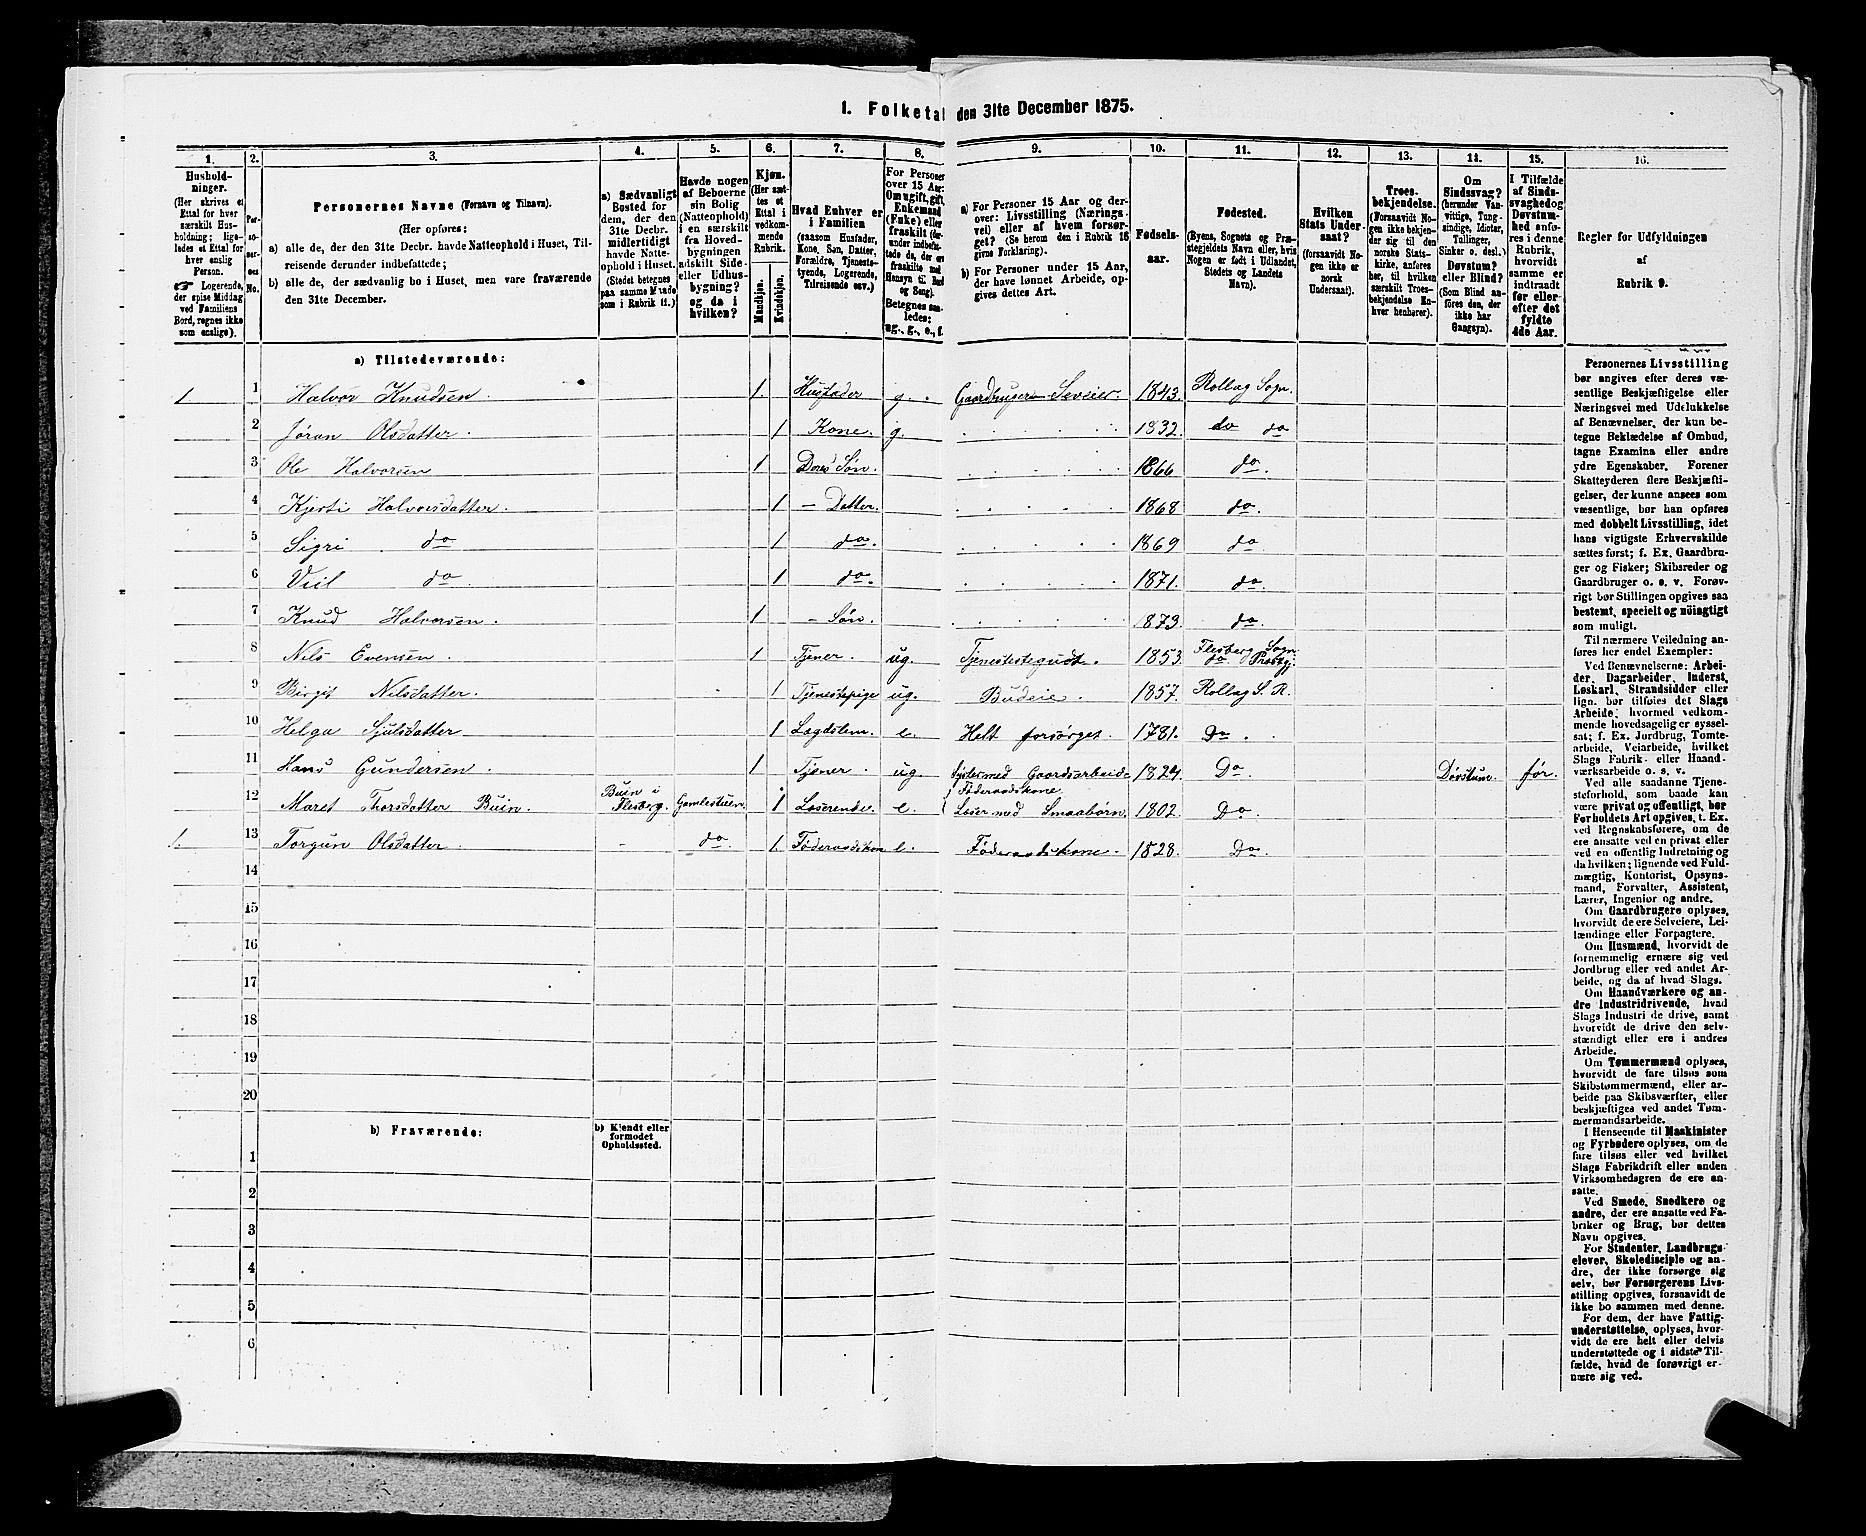 1. Folketal den 31te December 1875.
1.
Hushold-
ninger.
(Her skrives et
Ettal for hver
særskilt Hus-
holdning; lige-
ledes et Ettal for
hver enslig
Person.
☛ Logerende,
der spise Middag
ved Familiens
Bord, regnes ikke
som enslige).
2.
Per-
soner-
nes
No.
3.
Personernes Navne (Fornavn og Tilnavn).
(Her opføres:
a) alle de, der den 31te Decbr. havde Natteophold i Huset, Til-
reisende derunder indbefattede;
b) alle de, der sædvanlig bo i Huset, men vare fraværende
den 31te December.
4.
a) Sædvanligt
Bosted for
dem, der den
31te Decbr.
midlertidigt
havde Natte-
ophold i Huset.
(Stedet betegnes
paa samme Maade
som i Rubrik 11.)
5.
Havde nogen
af Beboerne
sin Bolig
(Natteophold)
i en særskilt
fra Hoved-
bygningen
adskilt Side-
eller Udhus-
bygning?
og da i
hvilken?
6.
Kjøn.
(Her sæt-
tes et
Ettal i
vedkom-
mende
Rubrik.
Mandkjøn.
Kvindekjøn.
7.
Hvad Enhver er
i Familien
(saasom Husfader,
Kone, Søn, Datter,
Forældre, Tjeneste-
tyende, Logerende,
Tilreisende osv.)
8.
For Personer
over 15 Aar:
Om ugift, gift,
Enkemand
(Enke) eller
fraskilt (her-
under indbefat-
tede de, der ere
fraskilte med
Hensyn til Bord
og Seng).
Betegnes saa-
ledes:
ug., g., e., f.
9.
a) For Personer 15 Aar og der-
over: Livsstilling (Nærings-
vei) eller af hvem forsør-
get? (Se herom den i Rubrik 16
givne Forklaring).
b) For Personer under 15 Aar,
der have lønnet Arbeide, op-
gives dettes Art.
10.
Fødsels-
aar.
11.
Fødested.
(Byens, Sognets og Præ-
stegjeldets Navn eller, hvis
Nogen er født i Udlandet,
Stedets og Landets
Navn).
12.
Hvilken
Stats Under-
saat?
(forsaavidt No-
gen ikke er
norsk
Undersaat).
13.
Troes-
bekjendelse.
(Forsaavidt No-
gen ikke bekjen-
der sig til den
norske Stats-
kirke, anføres
her, til hvilken
særskilt Troes-
bekjendelse En-
hver henhører).
14.
Om
Sindssvag?
(herunder Van-
vittige, Tung-
sindige, Idioter,
Tullinger,
Sinker o. desl.)
Døvstum?
eller Blind?
(Som Blind an-
føres den, der
ikke har
Gangsyn).
15.
I Tilfælde
af Sinds-
svaghed og
Døvstum-
hed anfø-
res i denne
Rubrik,
hvorvidt
samme er
indtraadt
før eller
efter det
fyldte
4de Aar.
16.
Regler for Udfyldningen
af
Rubrik 9.
a) Tilstedeværende:
1 1 Halvor Knudsen. 1. Husfader g. Gaardbruger Selveier. 1843. Rollag Sogn.
2 Jøran Olsdatter. 1 Kone. g. 1832. do do
3 Ole Halvorsen 1 Deres Søn. 1866 do.
4 Kjersti Halvorsdatter. 1 – Datter. 1868 do.
5 Sigri do 1 do. 1869 do
6 do 1 do. 1871. do
7 Knud Halvorsen. 1 – Søn. 1873. do.
8 Nils Evensen. 1 Tjener. ug. Tjenestegut. 1853. Flesberg Sogn do Præstgj.
9 Birgit Nilsdatter. 1 Tjenestepige ug. Budeie. 1857. Rollag S. R.
10 Helga Sjulsdatter 1 Lægdslem. e. Helt forsørget. 1781. Do.
11 Hans Gundersen. 1 Tjener. ug. med Gaardsarbeide 1824. Do Døvstum. før.
12 Maret Thorsdatter Buin. Buin i Flesberg. Gamlestuen. 1 Loserende. e. Føderaadskone. med Smaabørn. 1802. Do.
1. 13 Torgun Olsdatter. – do. 1. Føderaadskone e. Føderaadskone. 1828. Do.
14
15
16
17
18
19
20
b) Fraværende:
b) Kjendt eller
formodet
Opholdssted.
1
2
3
4
5
6
Personernes Livsstilling
bør angives efter deres væ-
sentlige Beskjæftigelse eller
Næringsvei med Udelukkelse
af Benævnelser, der kun be-
tegne Beklædelse af Ombud,
tagne Examina eller andre
ydre Egenskaber. Forener
Skatteyderen flere Beskjæfti-
gelser, der kunne ansees som
væsentlige, bør han opføres
med dobbelt Livsstilling, idet
hans vigtigste Erhvervskilde
sættes først; f. Ex. Gaardbru-
ger og Fisker; Skibsreder og
Gaardbruger o. s. v. Forøv-
rigt bør Stillingen opgives saa
bestemt, specielt og nöiagtigt
som muligt.
Til nærmere Veiledning an-
føres her endel Exempler:
Ved Benævnelserne: Arbei-
der, Dagarbeider, Inderst,
Løskarl, Strandsidder eller
lign. bør tilføies det Slags
Arbeide, hvormed vedkom-
mende hovedsagelig er syssel-
sat; f. Ex. Jordbrug, Tomte-
arbeide, Veiarbeide, hvilket
Slags Fabrik- eller Haand-
værksarbeide o. s. v.
Ved alle saadanne Tjene-
steforhold, som baade kan
være privat og offentligt, bør
Forholdets Art opgives, t. Ex.
ved Regnskabsførere, om de
ere ansatte ved en privat eller
ved en offentlig Indretning og
da hvilken; lignende ved Fuld-
mægtig, Kontorist, Opsyns-
mand, Forvalter, Assistent,
Lærer, Ingeniør og andre.
Om Gaardbrugere oplyses,
hvorvidt de ere Selveiere, Lei-
lændinge eller Forpagtere.
Om Husmænd, hvorvidt de
fornemmelig ernære sig ved
Jordbrug eller ved andet Ar-
beide, og da af hvad Slags.
Om Haandværkere og an-
dre Industridrivende, hvad
Slags Industri de drive, samt
hvorvidt de drive den selv-
stændigt eller ere i andres
Arbeide.
Om Tømmermænd oplyses,
hvorvidt de fare tilsøs som
Skibstømmermænd, eller ar-
beide paa Skibsværfter, eller
beskjæftiges ved andet Tøm-
mermandsarbeide.
I Henseende til Maskinister
og Fyrbødere oplyses, om de
fare tilsøs eller ved hvilket
Slags Fabrikdrift eller anden
Virksomhedsgren de ere an-
satte.
Ved Smede, Snedkere og
andre, der ere ansatte ved Fa-
briker og Brug, bør dettes
Navn opgives.
For Studenter, Landbrugs-
elever, Skoledisciple og an-
dre, der ikke forsørge sig
selv, bør Forsørgerens Livs-
stilling opgives, forsaavidt de
ikke bo sammen med denne.
For dem, der have Fattig-
understøttelse, oplyses, hvor-
vidt de ere helt eller delvis
understøttede og i sidste Til-
fælde, hvad de forøvrigt er-
nære sig ved.